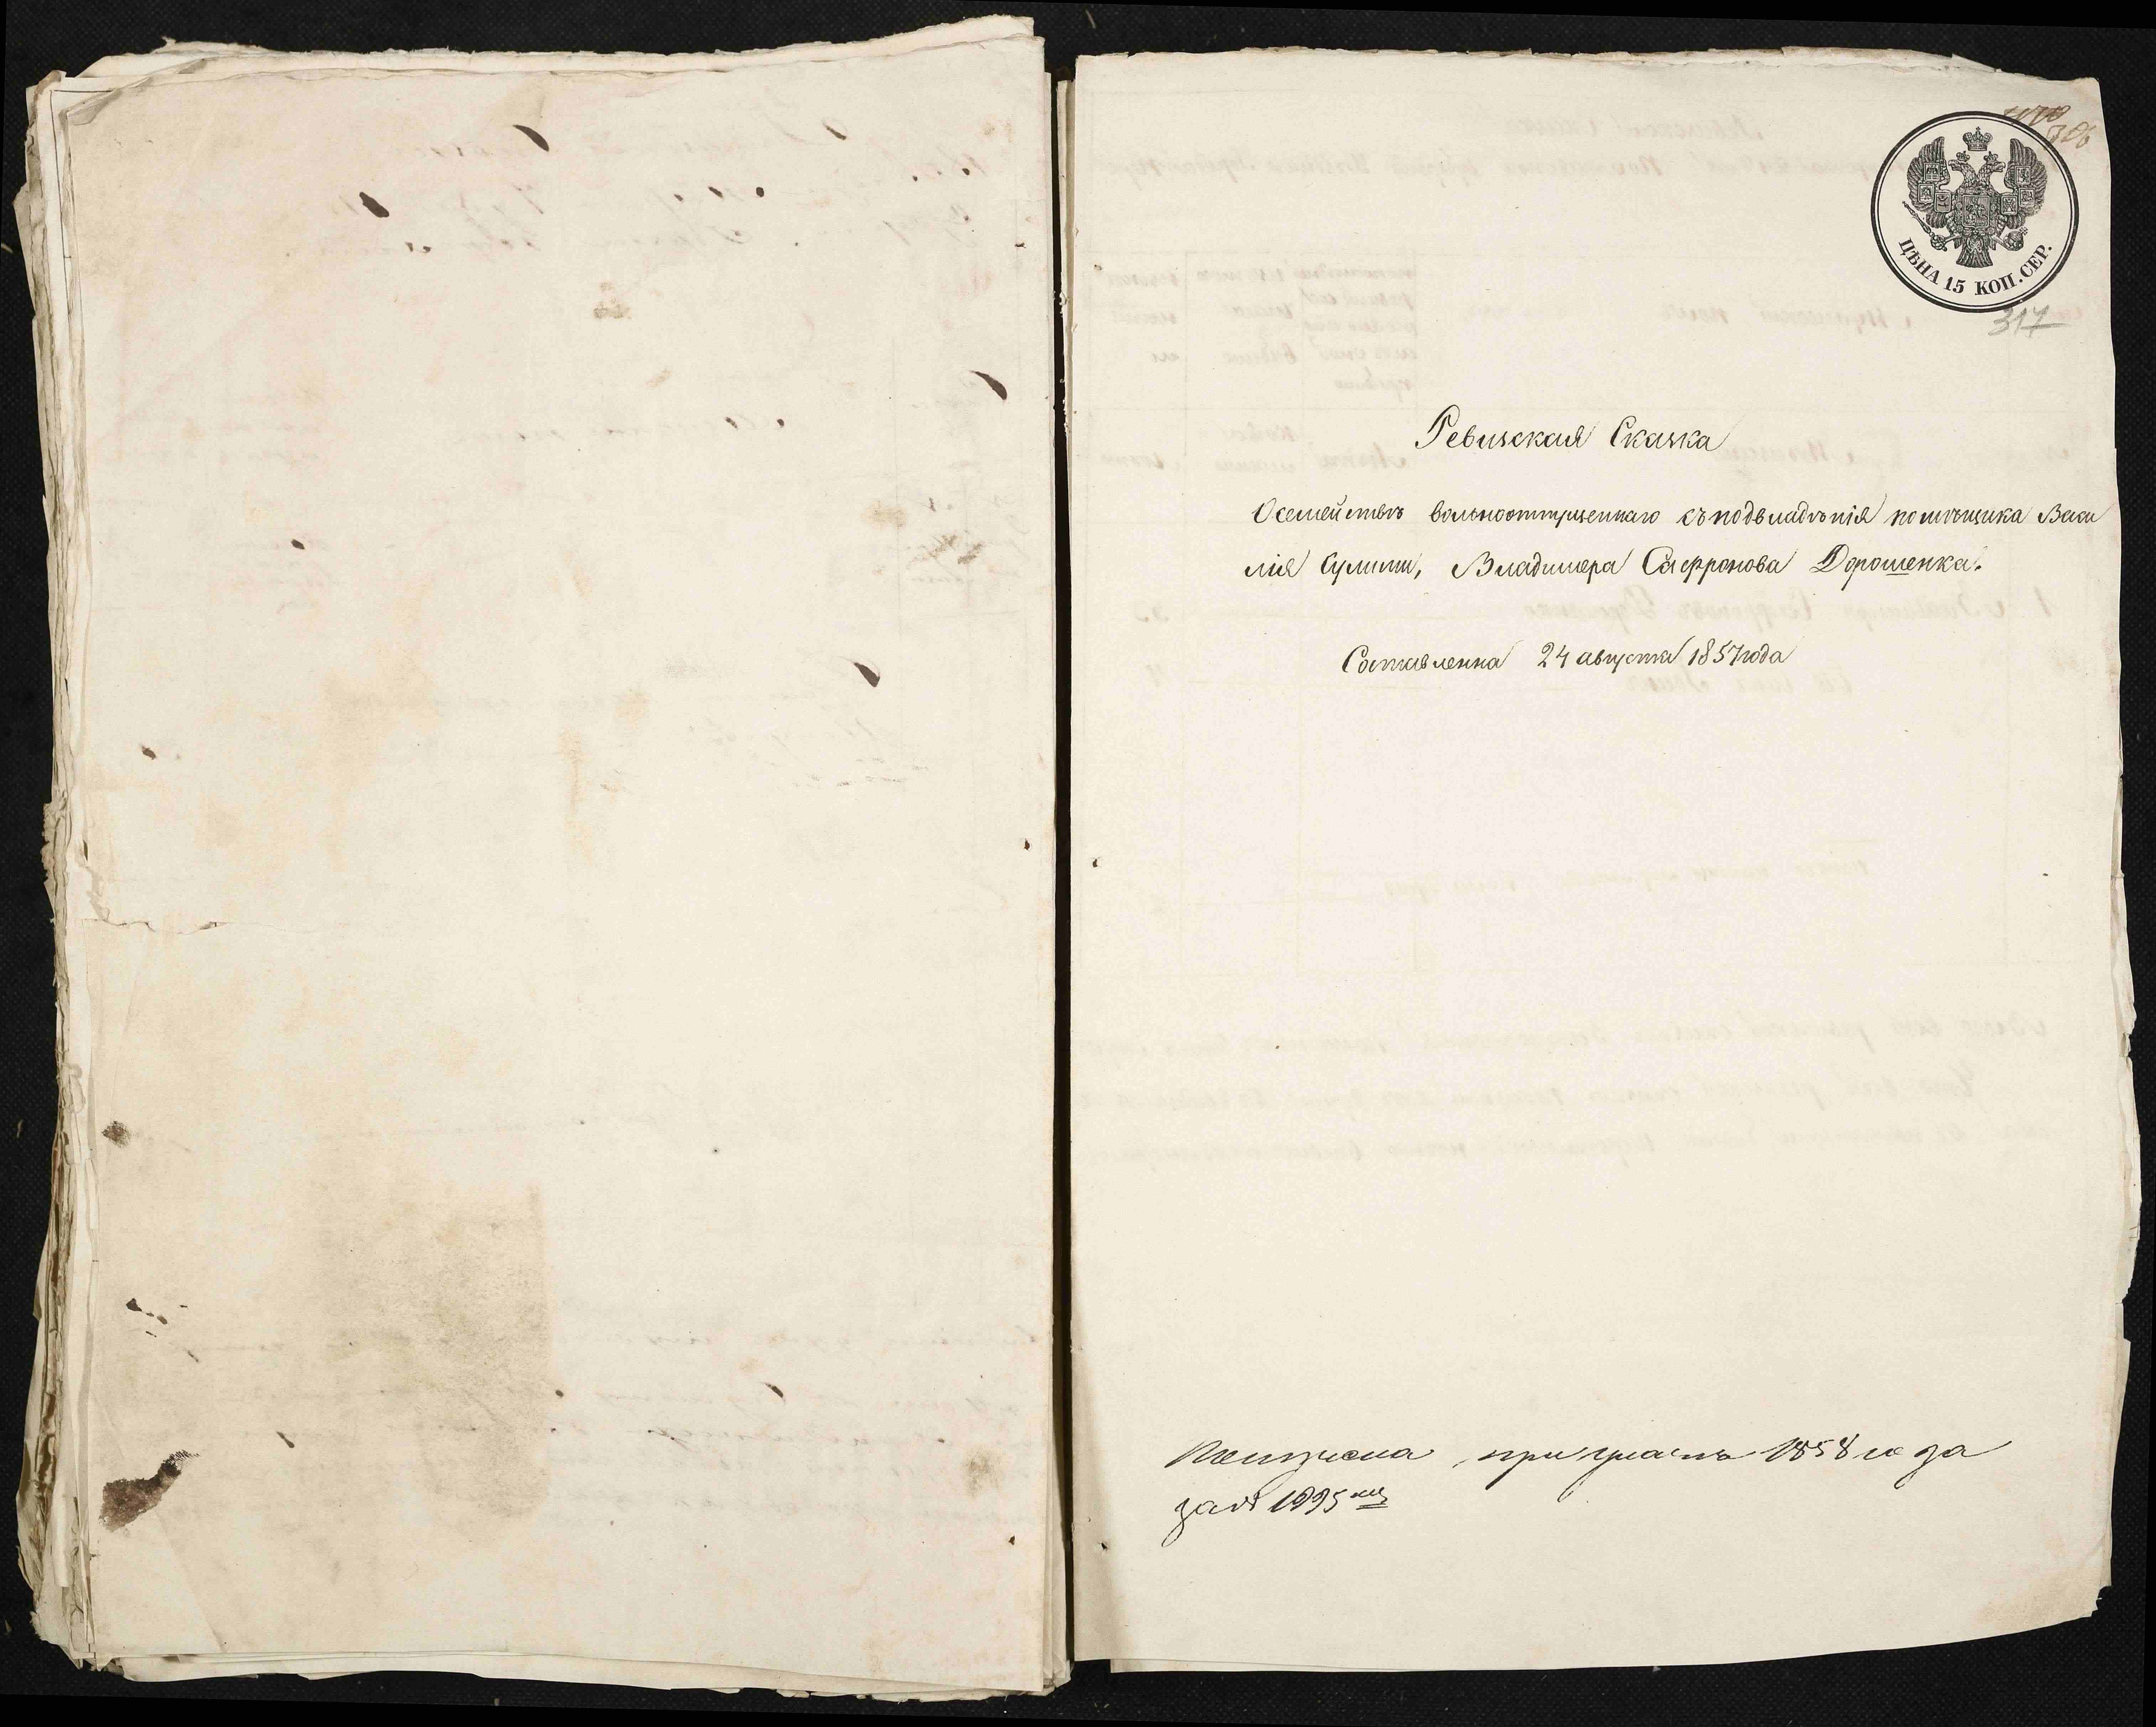 306
ЦѢНА 15 КОП. СЕР.
317
Ревизская Сказка
Осемействѣ вольноотпущеннаго съ подвладѣнія помѣщика Васи
лія Сулимы, Владимера Сафронова Дорошенка.
Составленна 24 августа 1857 года
при указѣ 1858 года
за № 1995